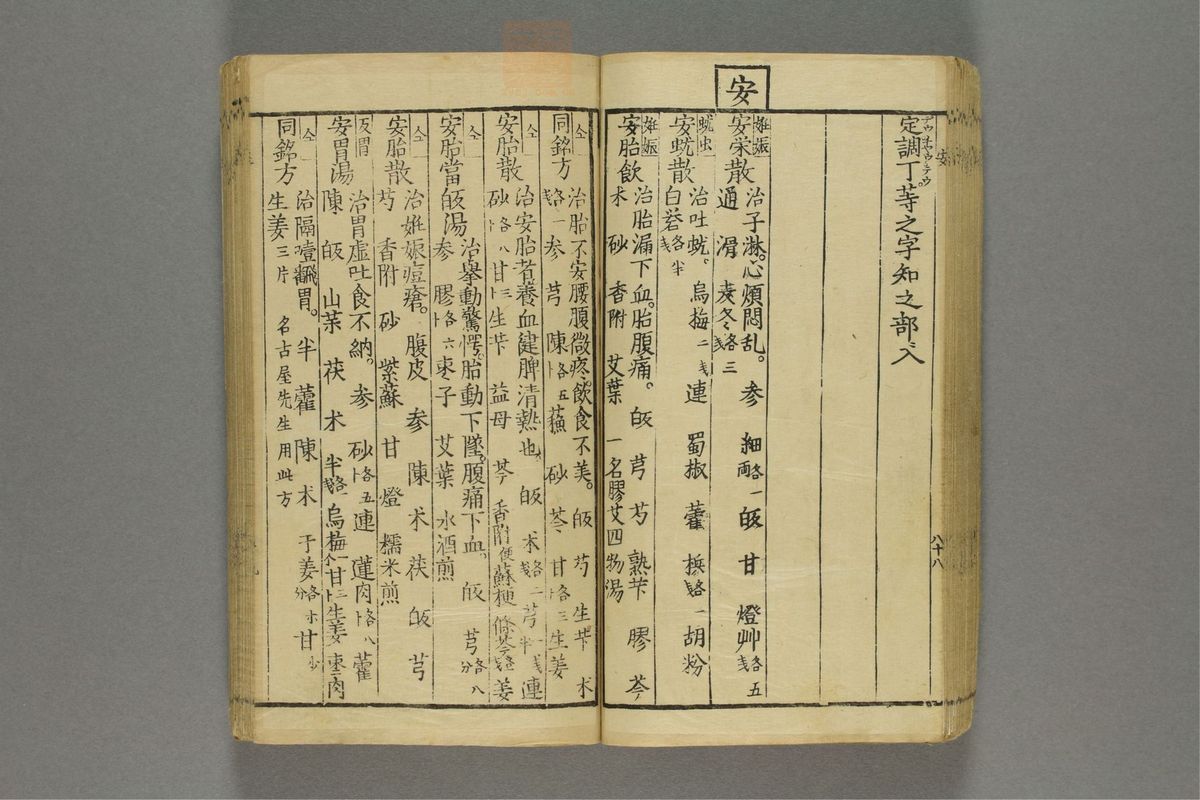 定調丁等之字知之部ニ入
テウ テウ テウ
安
八十八
安
妊娠
安栄散 治子淋。心煩悶乱。 参 細各一両 皈 甘 燈艸各五戔
通 滑 麦冬各三戔
蚘虫
安蚘散 治吐蚘。 烏梅二戔 連 蜀椒 藿 檳各一戔 胡粉
白礬各半戔
妊娠
安胎飲 治胎漏下血。胎腹痛。 皈 芎 芍 熟芐 膠 芩
朮 砂 香附 艾葉 一名膠艾四物湯
仝
同銘方 治胎不安腰腹微疼。飲食不美。 皈 芍 生芐 朮
各一戔 参 芎 陳各五卜 蘓 砂 芩 甘各三卜 生姜
仝
安胎散 治安胎者養血健脾清熱也 皈 朮各二戔 芎一戔半 連
砂各八卜 甘三卜 生芐 益母 芩 香附便 蘇梗 條芩各戔 姜
仝
安胎當皈湯 治擧動驚愕。胎動下墜。腹痛下血。 皈 芎各八分
参 膠各六卜 枣子 艾葉 水酒煎
仝
安胎散 治妊娠痘瘡。 腹皮 参 陳 朮 茯 皈 芎
芍 香附 砂 紫蘇 甘 燈 糯米煎
反胃
安胃湯 治胃虚吐食不納。 参 砂各五卜 連 蓮肉各八卜 藿
陳 皈 山茱 茯 朮 半各一戔 烏梅一个 甘三卜 生姜 枣二肉
仝
同銘方 治隔噎飜胃。 半 藿 陳 朮 干姜各分 甘少
生姜三片 名古屋先生用此方